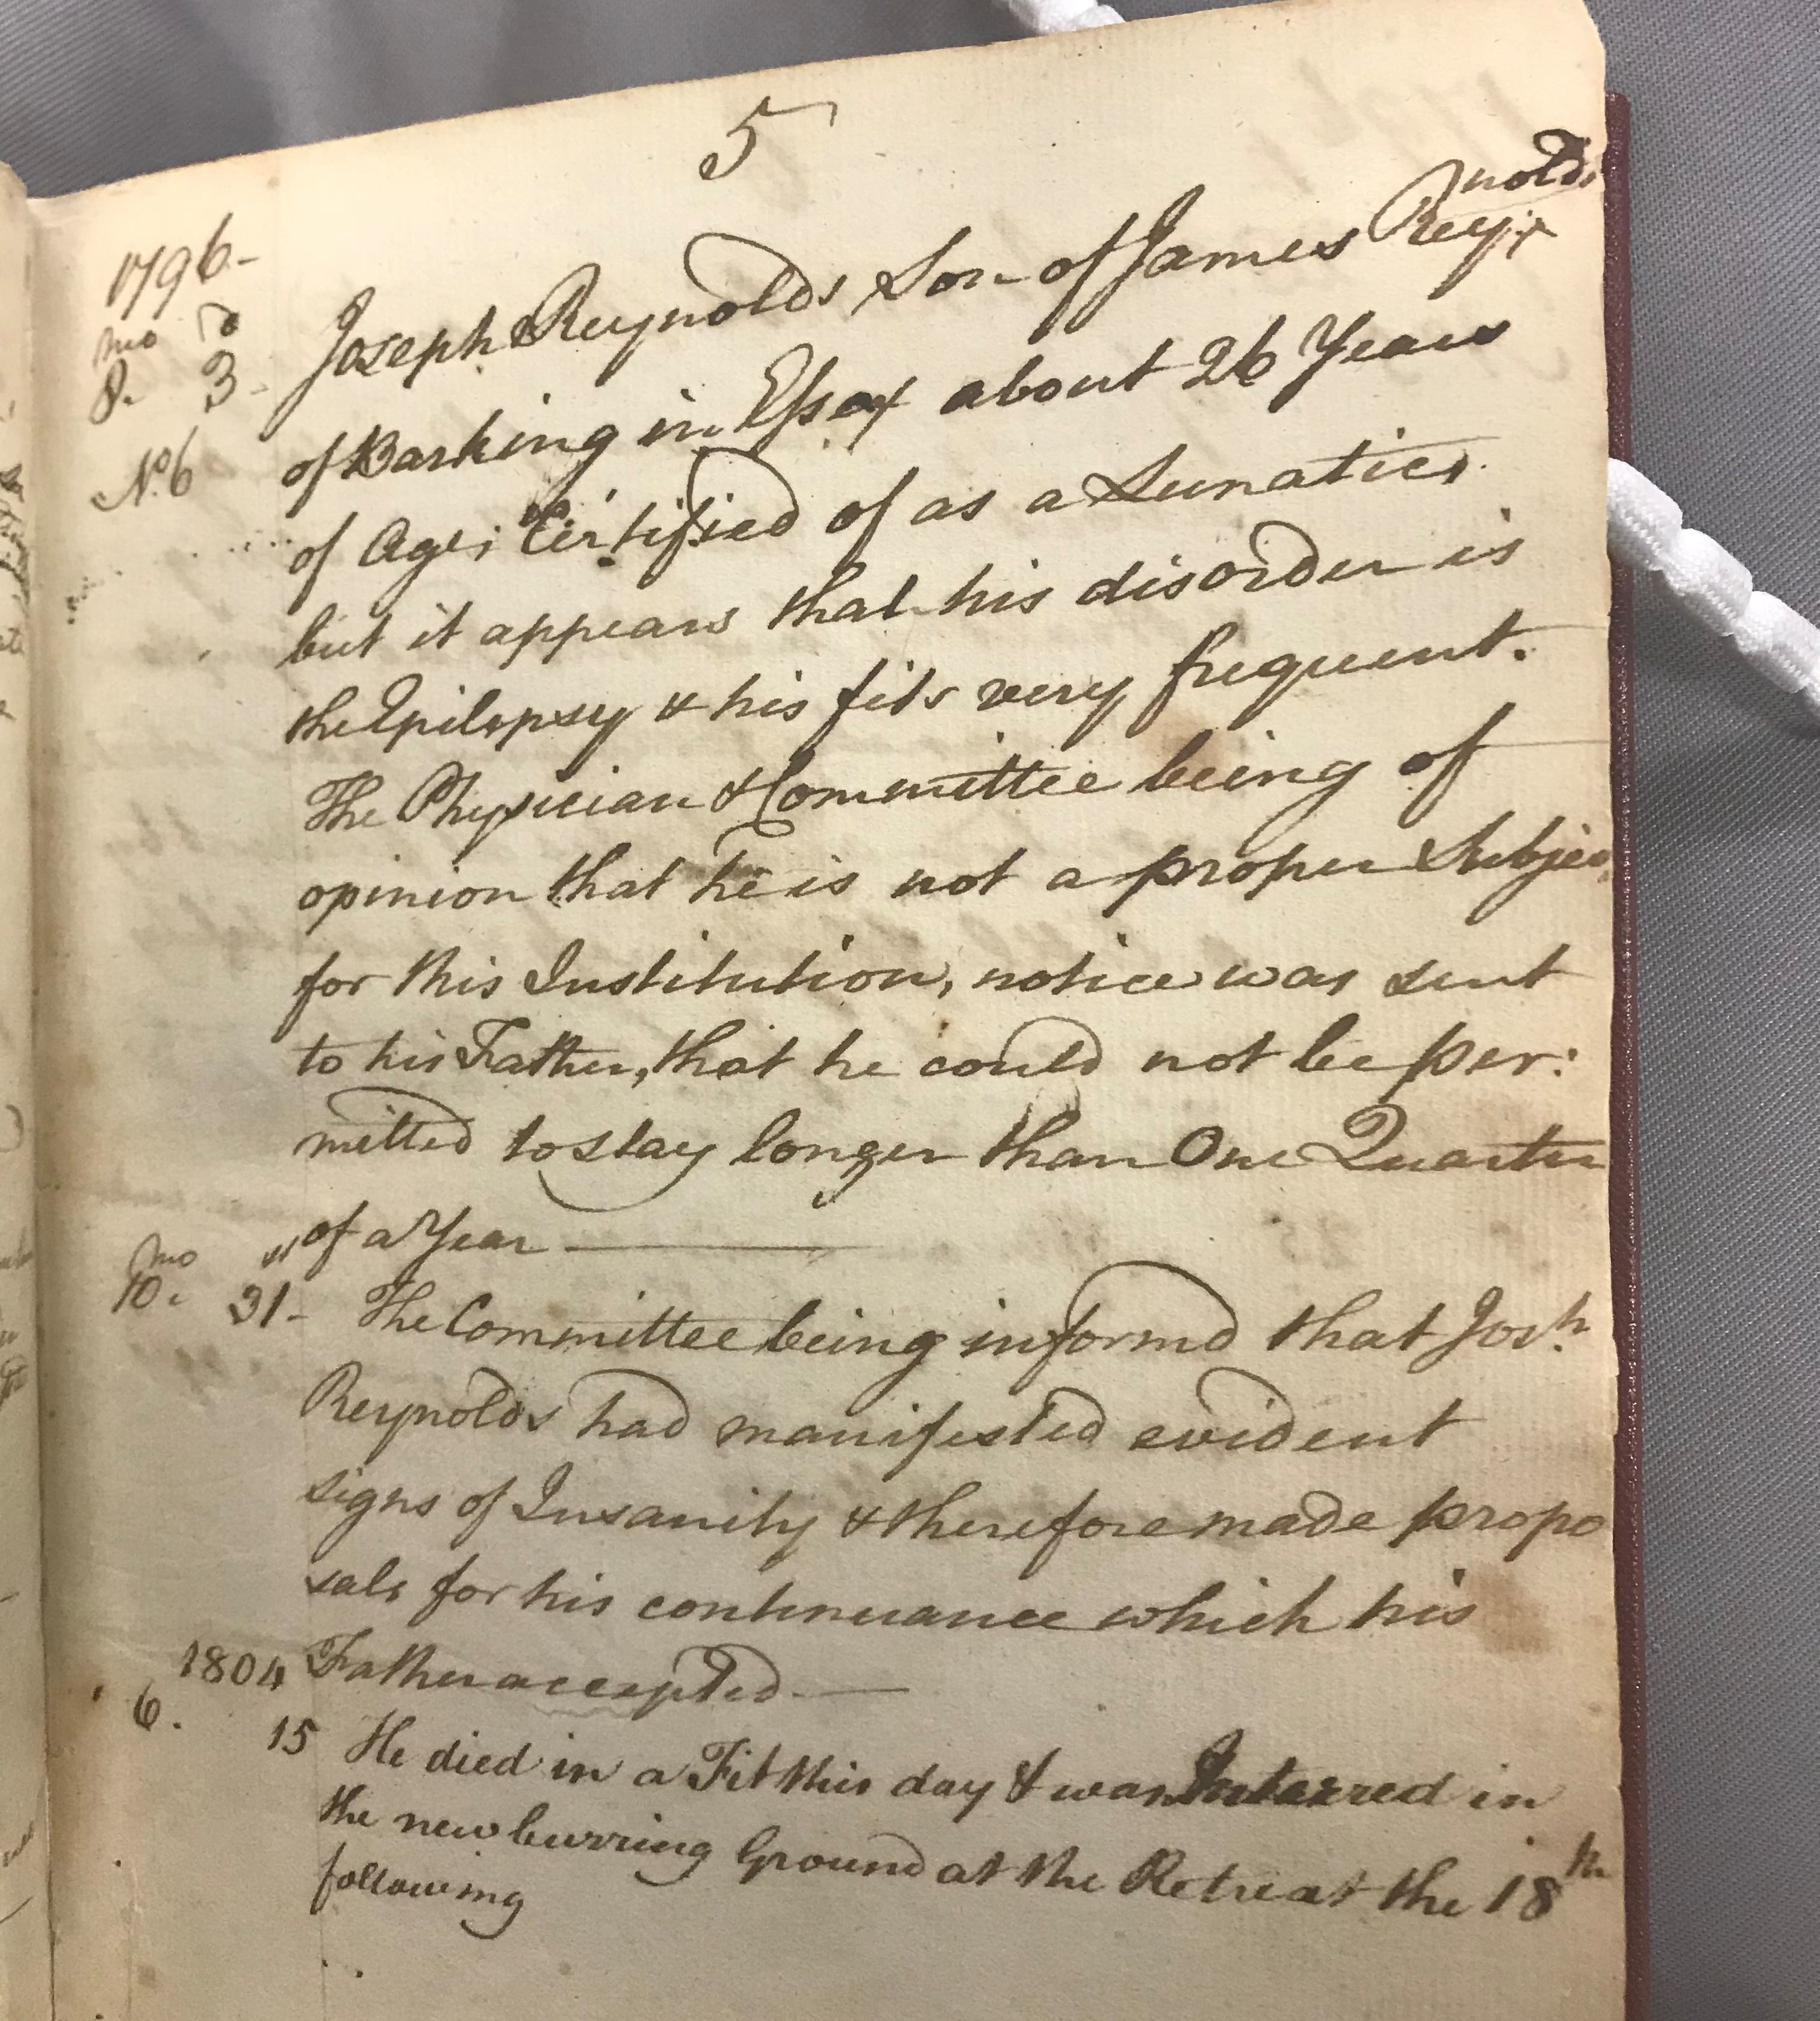 5
1796-
mo D
8. 3-
No. 6
Joseph Reynolds Son of James Reynolds
of Barking in Essex about 26 Years
of Age; Certified of as a Lunatic
but it appears that his disorder is
the Epilepsy & his fits very frequent.
The Physician & Committee being of
opinion that he is not a proper Subject
for this Institution, notice was sent
to his Father, that he could not be per:
mitted to stay longer than One Quarter
of a Year
mo
10. 31-
The Committee being informd that Josh.
Reynolds had manifested evident
signs of Insanity & therefore made propo
sals for his continuance which his
Father accepted.
1804
6. 15
He died in a Fit this day & was Interred in
the new burring Ground at the Retreat the 18th
following